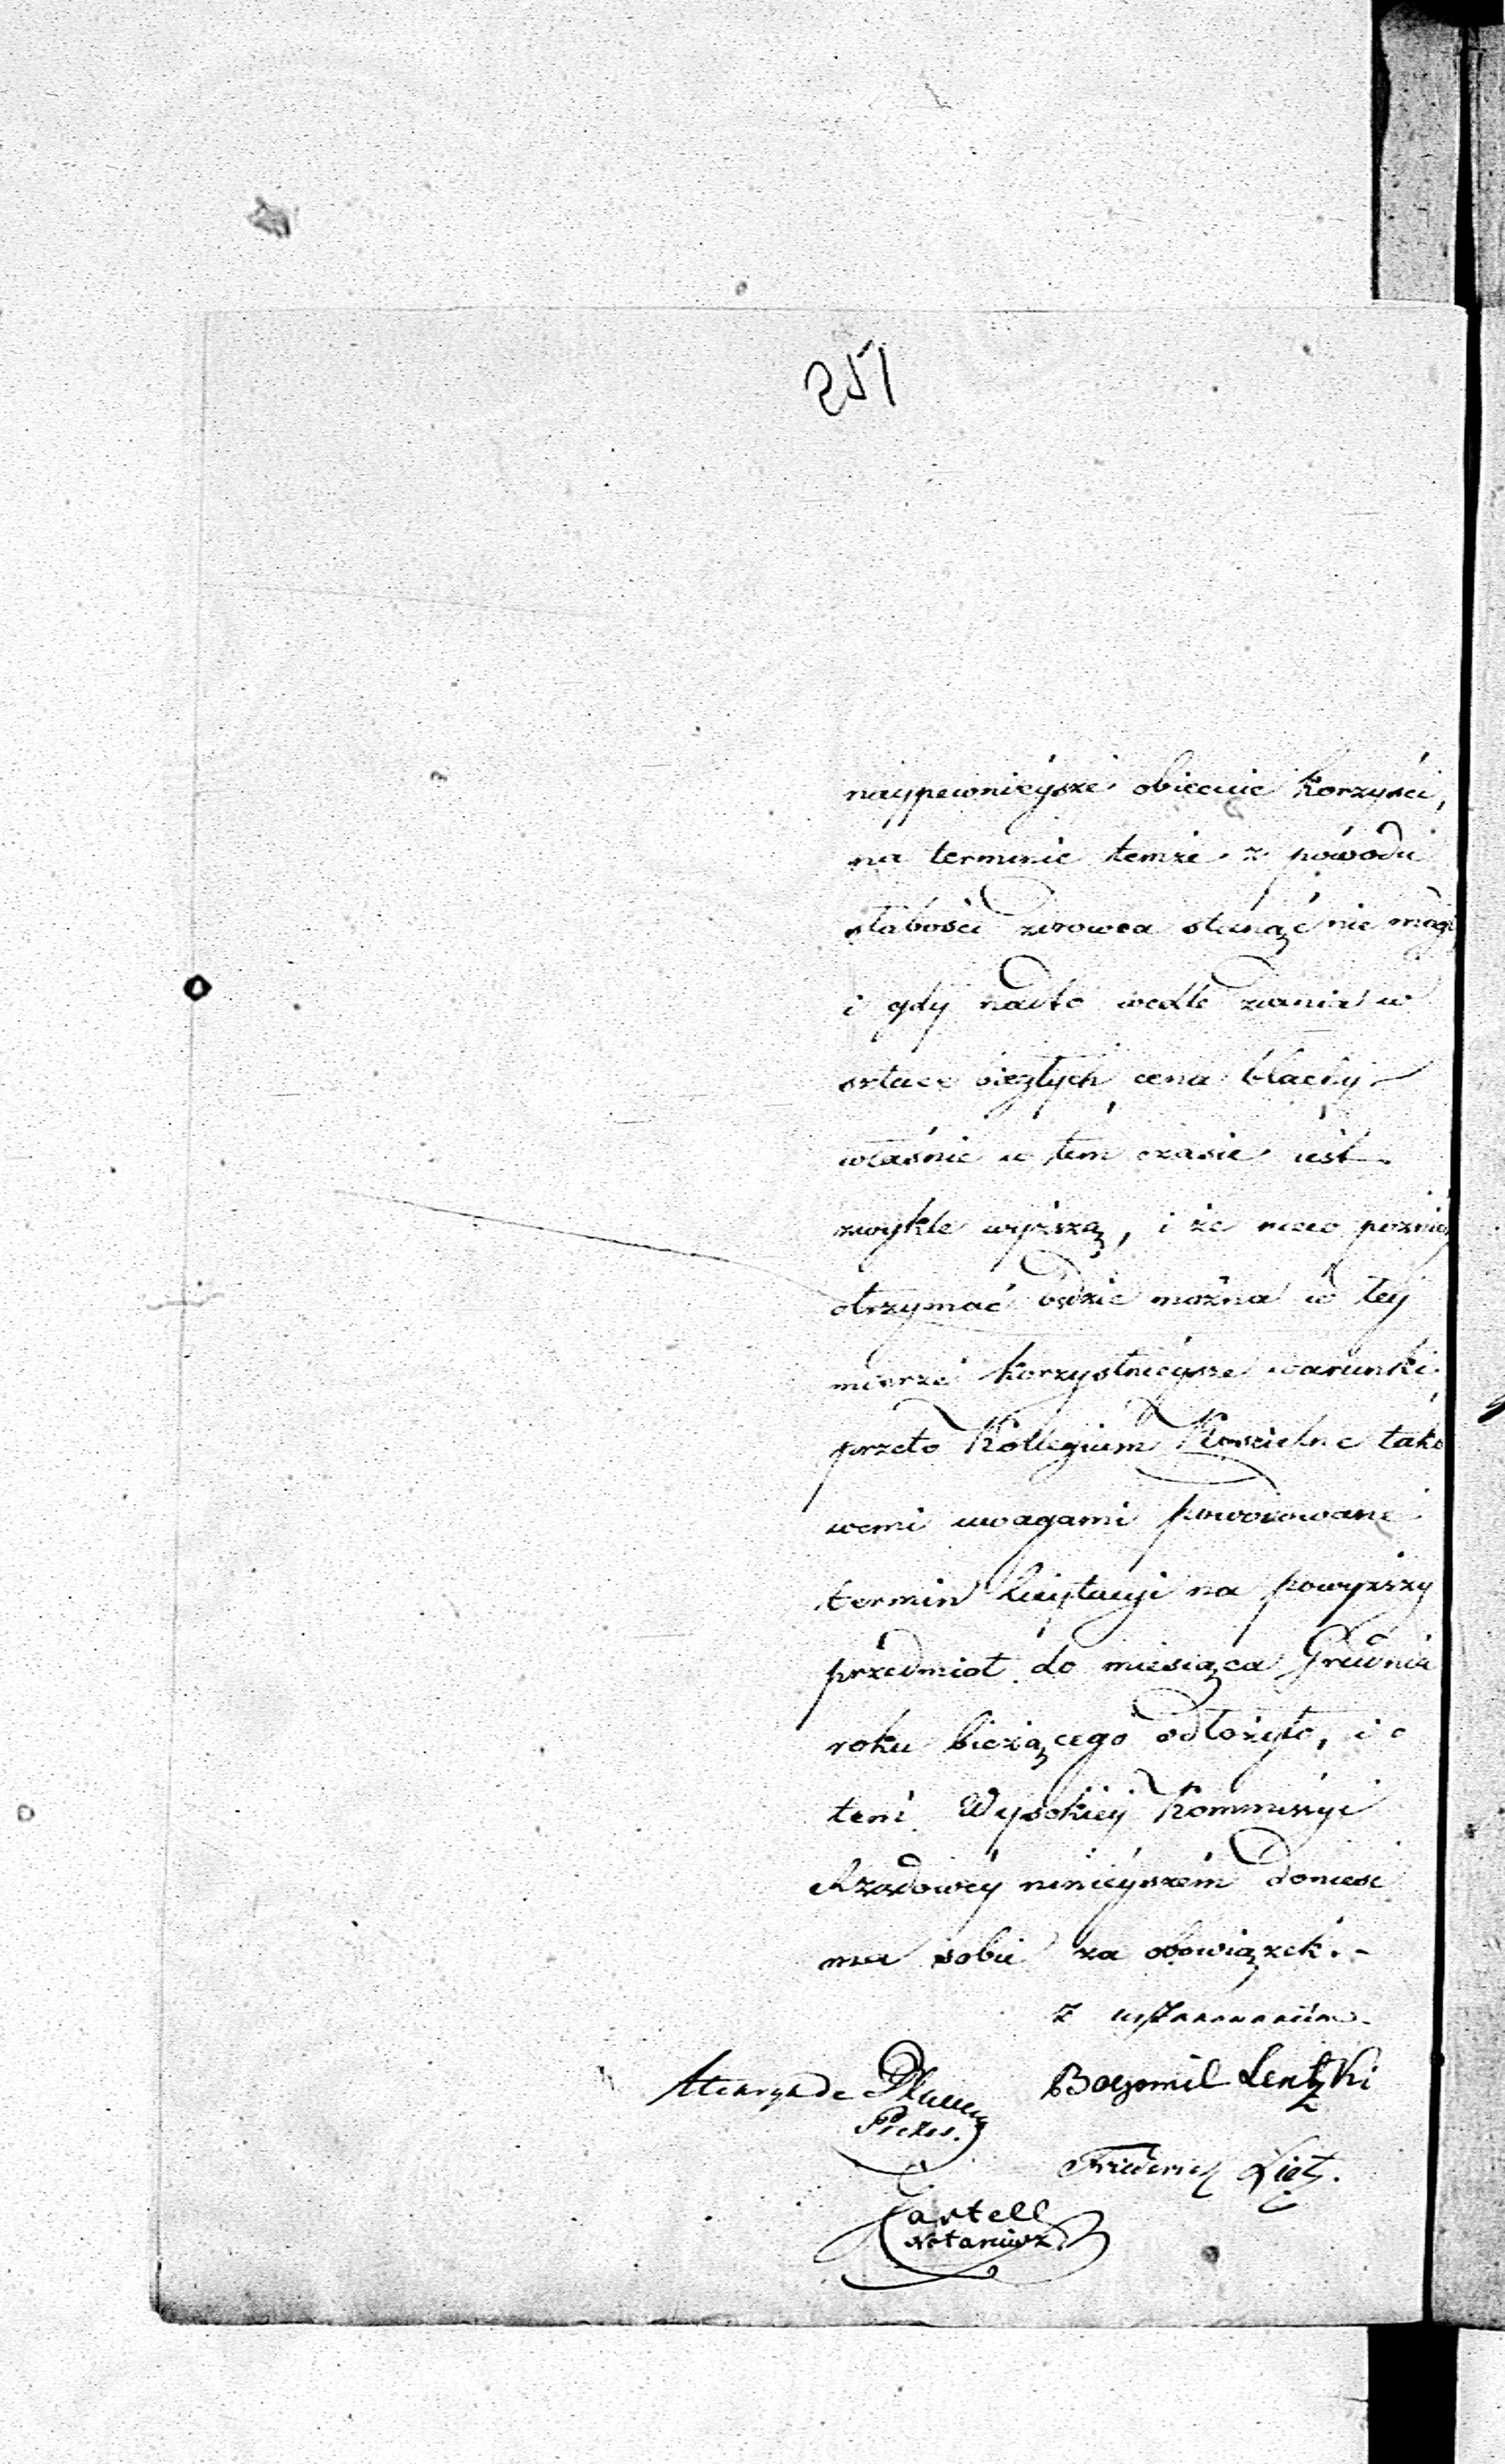 251
naypewnieysze obiecuie korzyści,
na terminie temże z powodu
słabości zdrowia stanąć nie mógł
i gdy nadto wedle zdania w
sztuce biegłych cena blachy
właśnie w tém czasie iest
zwykle wyższą, i że nieco pozniey
otrzymać będzie można w tey
mierze korzystnieysze warunki
przeto Kollegium Koscielne tako
wemi uwagami powodowane
termin licytacyi na powyższy
przedmiot do miesiąca Grudnia
roku bieżącego odłożyło, i o
tem Wysokiey Kommissyi
Rządowéy ninieyszém donieść
ma sobie za obowiązek. -
z uszanowaniem
Bogumil Lentzki
Prezes.
Friderich Lietz.
Kartell
Notariusz